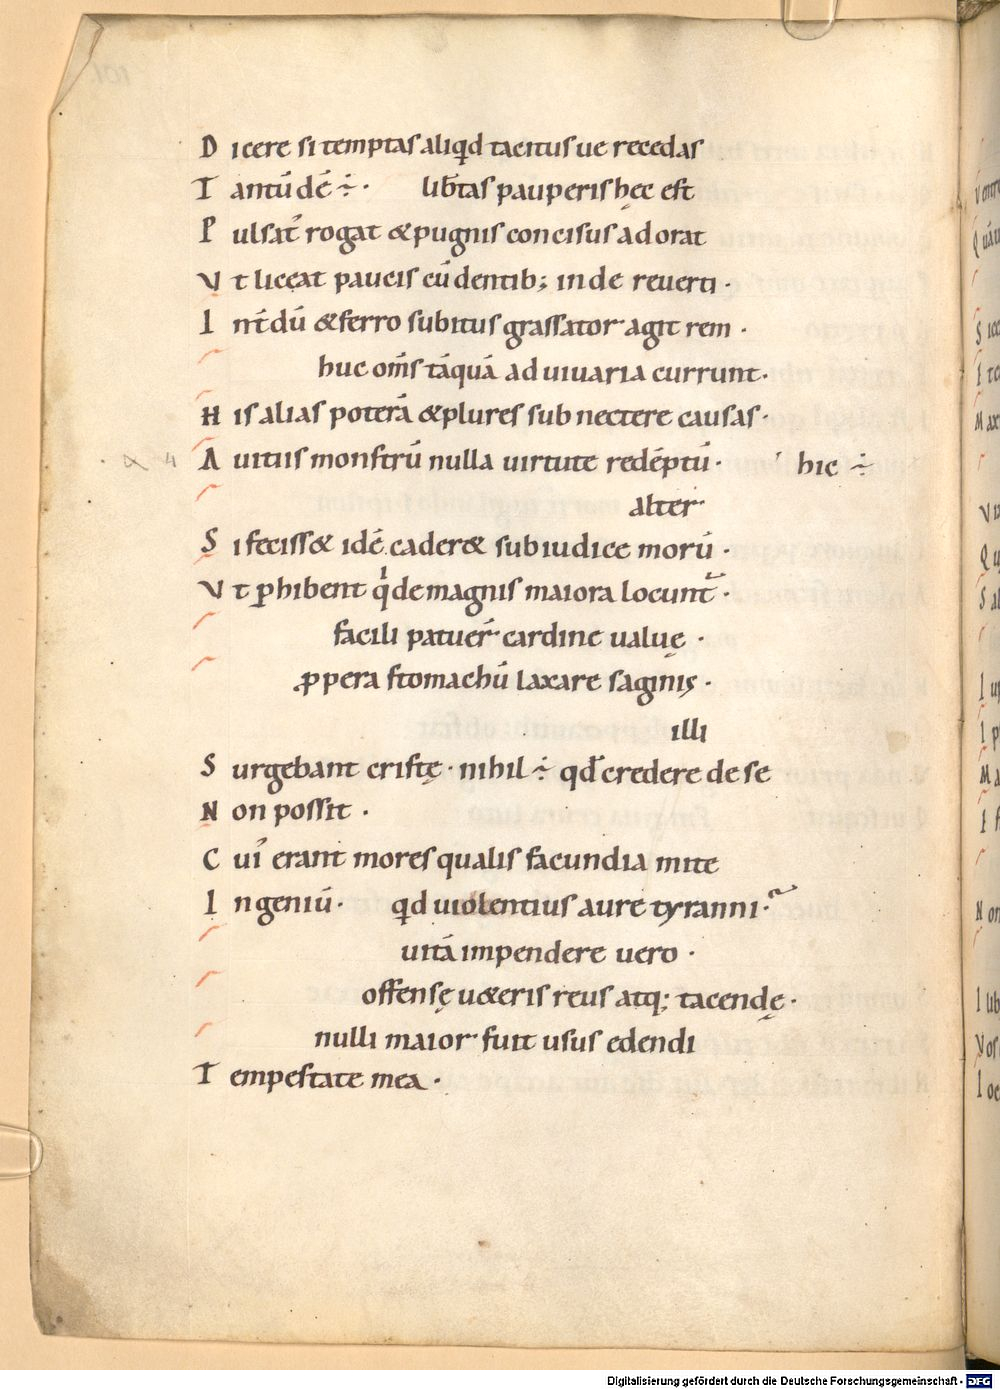 D icere si temptas aliqd tacitusue recedas
T antū dē ÷ · libtas pauperis hęc est
P ulsat rogat & pugnis concisus adorat
V t liceat paucis cū dentib; inde reuerti ·
I nt̄dū & ferro subitus grassator agit rem ·
huc om̄s tāquā ad uiuaria currunt·
H is alias poterā & plures subnectere causas·
A uitiis monstrū nulla uirtute redēptū · hic ÷
alter
S i feciss& idē cader& sub iudice morū ·
V t phibent qde magnis maiora locunt ·
facili patuer cardine ualuę ·
ppera stomachū laxare saginis ·
illi
S urgebant cristę · nihil ÷ qđ credere de se
N on possit ·
C ui erant mores qualis facundia mite
I ngeniū · qd uiolentius aure tyranni ·
uitā impendere uero ·
offensę u&eris reus atq; tacendę ·
nulli maior fuit usus edendi
T empestate mea ·
Digitalisierung gefördert durch die Deutsche Forschungsgemeinschaft - DFG